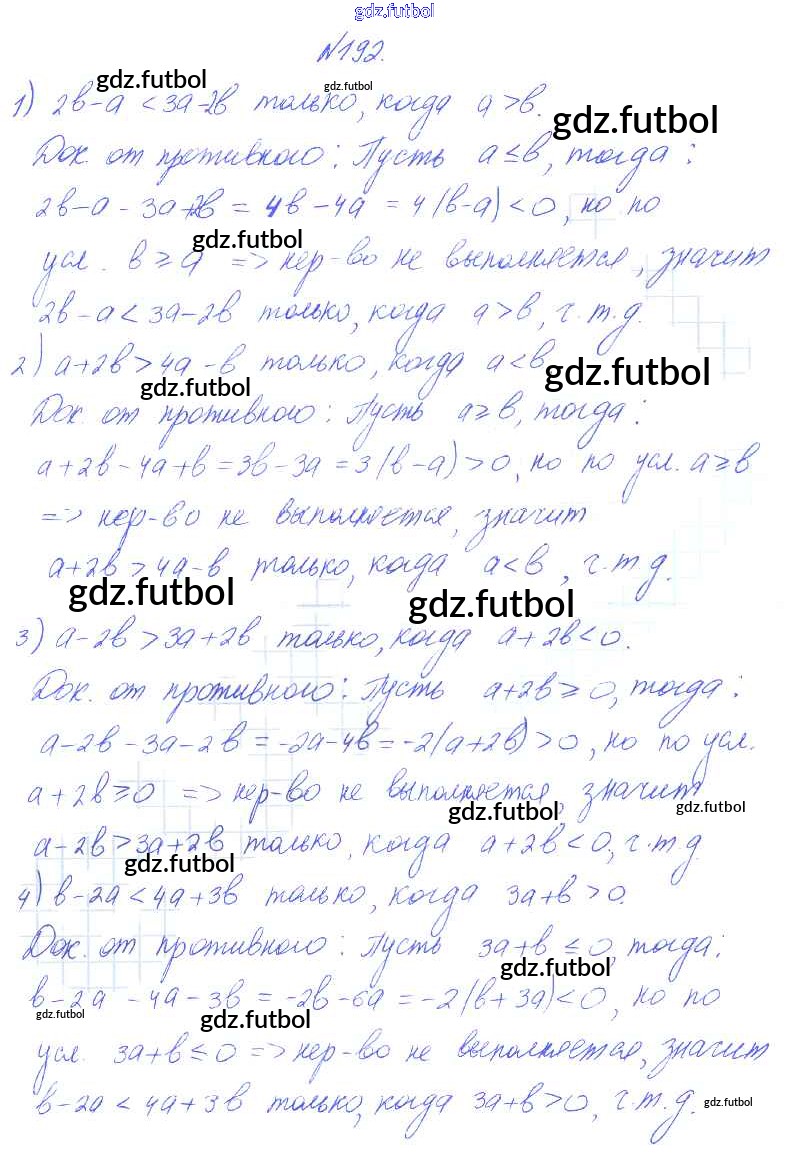 gdz.futbol
№192.
gdz.futbol
gdz.futbol
1) 2b-a < 3a-2b только, когда a>b.
gdz.futbol
Док. от противного: Пусть a≤b, тогда:
2b-a - 3a+2b = 4b-4a = 4(b-a)<0, но по
gdz.futbol
усл. b≥a => нер-во не выполняется, значит
2b-a < 3a-2b только, когда a>b, ч.т.д.
2) a+2b>4a-b только, когда a<b
gdz.futbol
gdz.futbol
Док. от противного: Пусть a≥b, тогда:
a+2b-4a+b=3b-3a=3(b-a)>0, но по усл. a≥b
=> нер-во не выполняется, значит
a+2b>4a-b только, когда a<b, ч.т.д.
gdz.futbol
gdz.futbol
3) a-2b>3a+2b только, когда a+2b<0.
Док. от противного: Пусть a+2b≥0, тогда:
a-2b-3a-2b=-2a-4b=-2(a+2b)>0, но по усл.
a+2b≥0 => нер-во не выполняется, значит
gdz.futbol
gdz.futbol
a-2b>3a+2b только, когда a+2b<0, ч.т.д
gdz.futbol
4) b-2a<4a+3b только, когда 3a+b>0.
Док. от противного: Пусть 3a+b≤0, тогда:
gdz.futbol
b-2a-4a-3b=-2b-6a=-2(b+3a)<0, но по
gdz.futbol
gdz.futbol
усл. 3a+b≤0 => нер-во не выполняется, значит
b-2a<4a+3b только, когда 3a+b>0, ч.т.д.
gdz.futbol